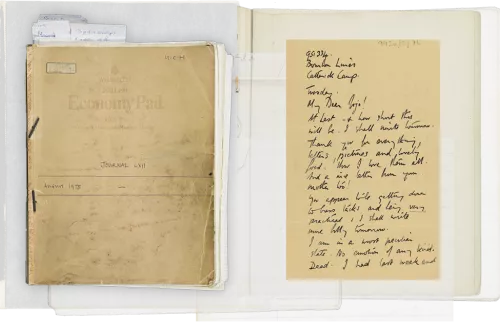 Economy Pad
JOURNAL
AUGUST
Catterick Camp.
Tuesday.
My Dear Jojo!
At last - & how short this
will be. I shall write tomorrow.
Thank you for everything,
letters, pictures and lovely
food. How I love them all.
And a nice letter from your
mother too.
You appear to be getting down
to brass tacks and being very
practical, & I shall write
more fully tomorrow.
I am in a most peculiar
state. No emotion of any kind.
Dead. I had last weekend